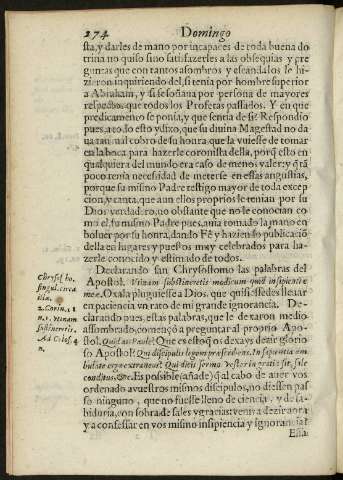 274 Domingo
sta, y darles de mano por incapaces de toda buena do
trina no quiso sino satisfazerles a las obsequias y pre
guntas que con tantos asombros y escandalos le hi-
zieron inquiriendo del, si tenia por hombre superior
a Abraham, y si se soñaua por persona de mayores
respectos que todos los Profetas passados. Y en que
predicamento se ponia, y que sentia de si? Respondio
pues a todo esto y dixo, que su diuina Magestad no da
ua tan mal cobro de su honra, que la vuiesse de tomar
en la boca para hazerse coronista della, porq̃ esto en
qualquiera del mundo era caso de menos valer: y q̃ra
poco tenia necessidad de meterse en essas angustias,
porque su mismo Padre testigo mayor de toda excep
cion, y canta, que aun ellos propios le tenian por su
Dios verdadero, no obstante que no le conocian co
mo el, su mismo Padre pues, auia tomado la mano en
boluer por su honra, dando Fè y haziendo publicaciõ
della en lugares y puestos muy celebrados para ha-
zerle conocido y estimado de todos.
Declarando san Chrysostomo las palabras del
Apostol. Vtinam substineretis modicum quid insipientiæ
meæ. Oxala pluguiesse a Dios, que quisiessedes lleuar
en paciencia vn rato de mi grande ignorancia. De-
clarando pues, estas palabras, que le dexaron medio
assombrado, començò a preguntar al proprio Apo-
stol. Quid ais Paule? Que es esto q̃ os dexays dezir glorio
so Apostol? Qui discipulis legem præscribens. In sapientia am
bulate erga extraneos? Qui dicis sermo vester in gratia sit, sale
conditus, &c. Es possible (añade) q̃ al cabo de auer vos
ordenado a vuestros mismos discipulos, no diessen pas
so ninguno, que no fuesse lleno de ciencia, y de sa-
biduria, con sobra de sales y gracias: venir a dezir aora
y a confessar en vos mismo insipiencia y ignorancia?
Essa
Chrys. ho.
singul. circa
illa.
2. Corin. 11
n. 1. vtinam
sustineretis.
Ad Colos. 4
n.